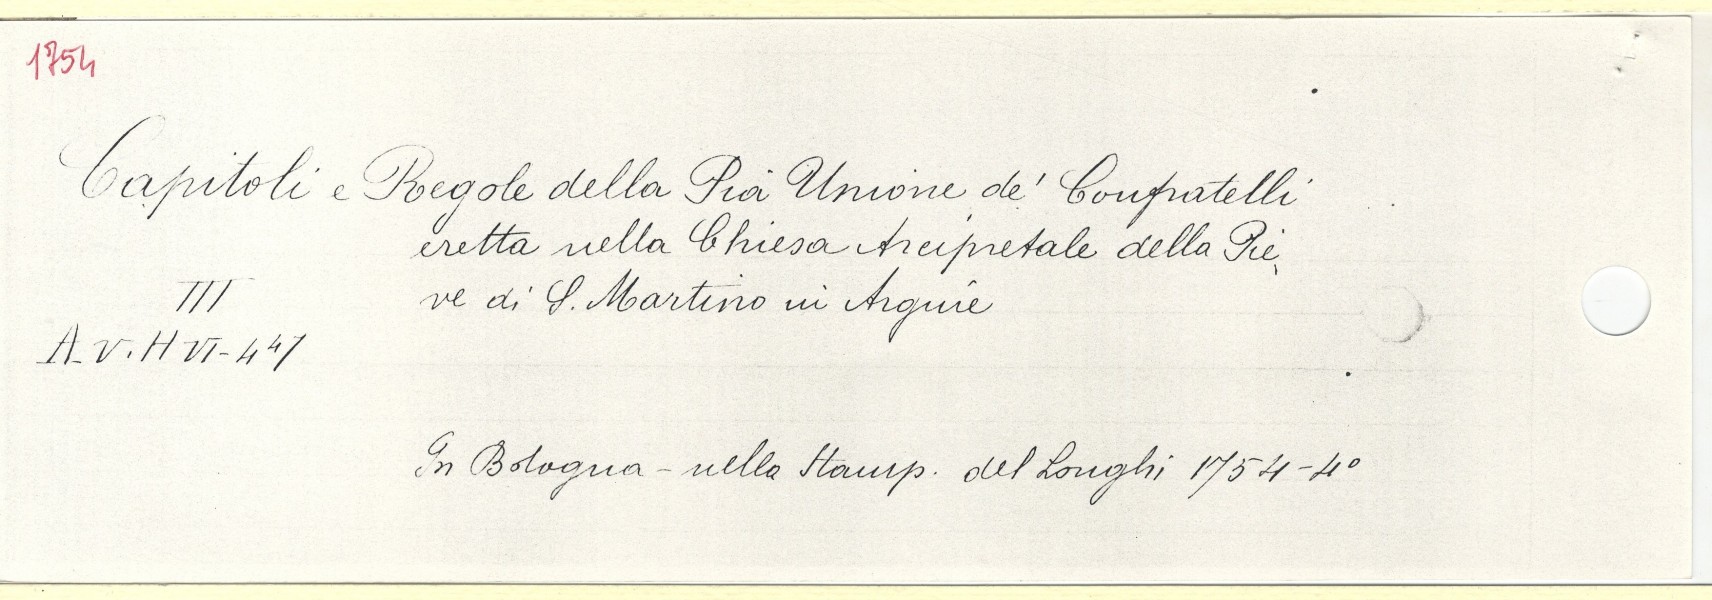 1754
Capitoli e Regole della Pia Unione de' Confratelli
eretta nella Chiesa Arcipretale della Pie-
ve di S. Martino in Argine
III
A. V. H VI - 447
In Bologna - nella Stamp. del Longhi 1754 - 4°